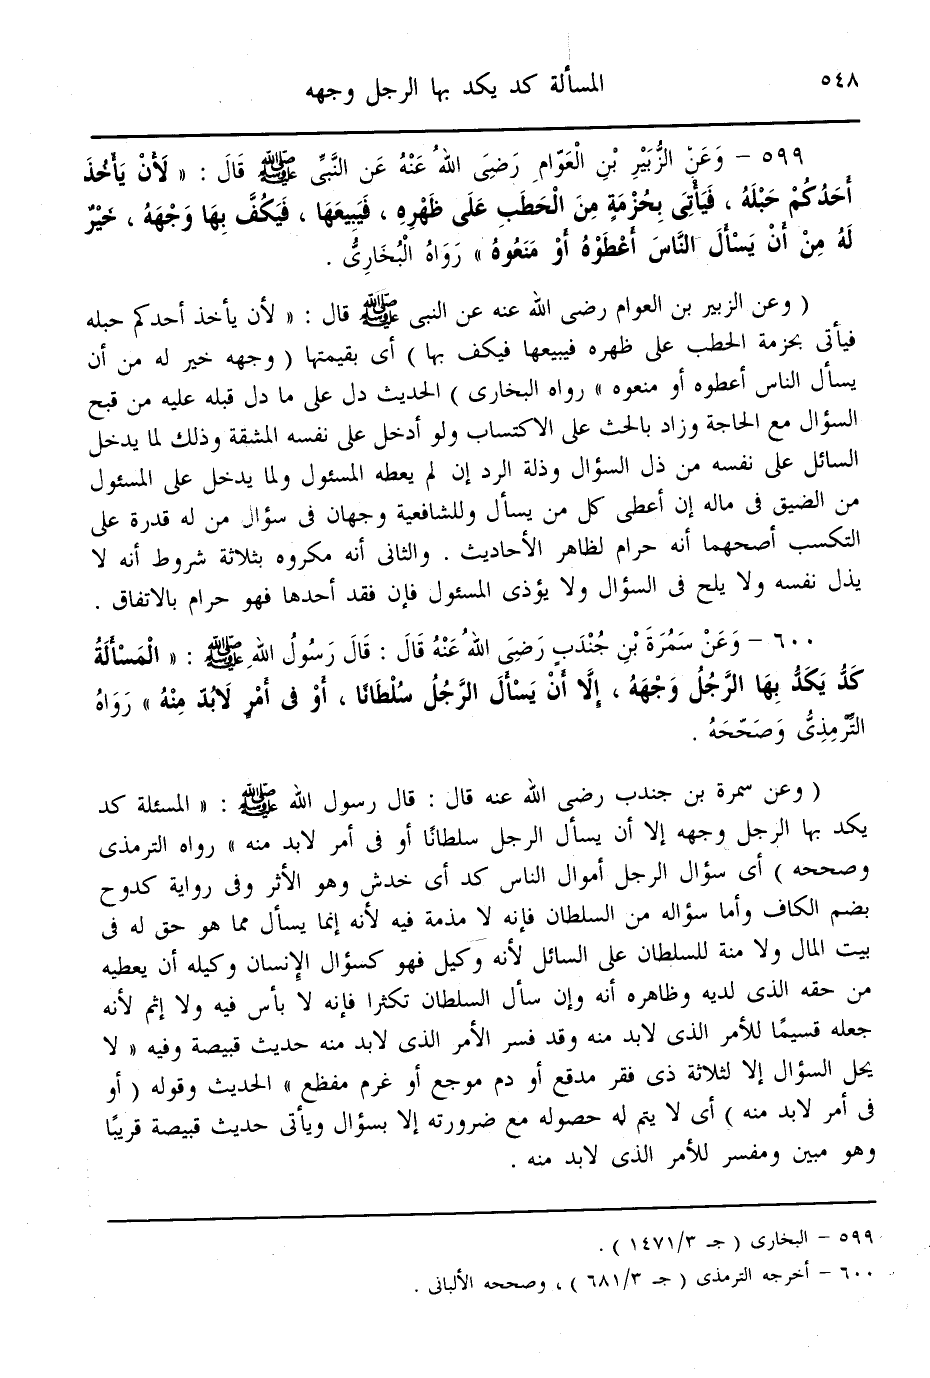 ٥٤٨
المسألة كد يكد بها الرجل وجهه
٥٩٩ – وَعَنْ الزُّبَيْرِ بْنِ الْعَوَّامِ رَضِىَ اللهُ عَنْهُ عَنِ النَّبِىِّ ﷺ قَالَ : « لَأَنْ يَأْخُذَ
أَحَدُكُمْ حَبْلَهُ ، فَيَأْتِى بِحُزْمَةٍ مِنَ الْحَطَبِ عَلَى ظَهْرِهِ ، فَيَبِيعَهَا ، فَيَكُفَّ بِهَا وَجْهَهُ ، خَيْرٌ
لَهُ مِنْ أَنْ يَسْأَلَ النَّاسَ أَعْطَوْهُ أَوْ مَنَعُوهُ » رَوَاهُ الْبُخَارِىُّ .
( وعن الزبير بن العوام رضى الله عنه عن النبى ﷺ قال : « لأن يأخذ أحدكم حبله
فيأتى بحزمة الحطب على ظهره فيبيعها فيكف بها ) أى بقيمتها ( وجهه خير له من أن
يسأل الناس أعطوه أو منعوه » رواه البخارى ) الحديث دل على ما دل قبله عليه من قبح
السؤال مع الحاجة وزاد بالحث على الاكتساب ولو أدخل على نفسه المشقة وذلك لما يدخل
السائل على نفسه من ذل السؤال وذلة الرد إن لم يعطه المسئول ولما يدخل على المسئول
من الضيق فى ماله إن أعطى كل من يسأل وللشافعية وجهان فى سؤال من له قدرة على
التكسب أصحهما أنه حرام لظاهر الأحاديث . والثانى أنه مكروه بثلاثة شروط أنه لا
يذل نفسه ولا يلح فى السؤال ولا يؤذى المسئول فإن فقد أحدها فهو حرام بالاتفاق .
٦٠٠ – وَعَنْ سَمُرَةَ بْنِ جُنْدَبٍ رَضِىَ اللهُ عَنْهُ قَالَ : قَالَ رَسُولُ اللهِ ﷺ : « الْمَسْأَلَةُ
كَدٌّ يَكُدُّ بِهَا الرَّجُلُ وَجْهَهُ ، إِلَّا أَنْ يَسْأَلَ الرَّجُلُ سُلْطَانًا ، أَوْ فِى أَمْرٍ لَابُدَّ مِنْهُ » رَوَاهُ
التِّرْمِذِىُّ وَصَحَّحَهُ .
( وعن سمرة بن جندب رضى الله عنه قال : قال رسول الله ﷺ : « المسئلة كد
يكد بها الرجل وجهه إلا أن يسأل الرجل سلطانًا أو فى أمر لابد منه » رواه الترمذى
وصححه ) أى سؤال الرجل أموال الناس كد أى خدش وهو الأثر وفى رواية كدوح
بضم الكاف وأما سؤاله من السلطان فإنه لا مذمة فيه لأنه إنما يسأل مما هو حق له فى
بيت المال ولا منة للسلطان على السائل لأنه وكيل فهو كسؤال الإنسان وكيله أن يعطيه
من حقه الذى لديه وظاهره أنه وإن سأل السلطان تكثرا فإنه لا بأس فيه ولا إثم لأنه
جعله قسيمًا للأمر الذى لابد منه وقد فسر الأمر الذى لابد منه حديث قبيصة وفيه « لا
يحل السؤال إلا لثلاثة ذى فقر مدقع أو دم موجع أو غرم مفظع » الحديث وقوله ( أو
فى أمر لابد منه ) أى لا يتم له حصوله مع ضرورته إلا بسؤال ويأتى حديث قبيصة قريبًا
وهو مبين ومفسر للأمر الذى لابد منه .
٥٩٩ – البخارى ( جـ ١٤٧١/٣ ) .
٦٠٠ – أخرجه الترمذى ( جـ ٦٨١/٣ ) ، وصححه الألبانى .